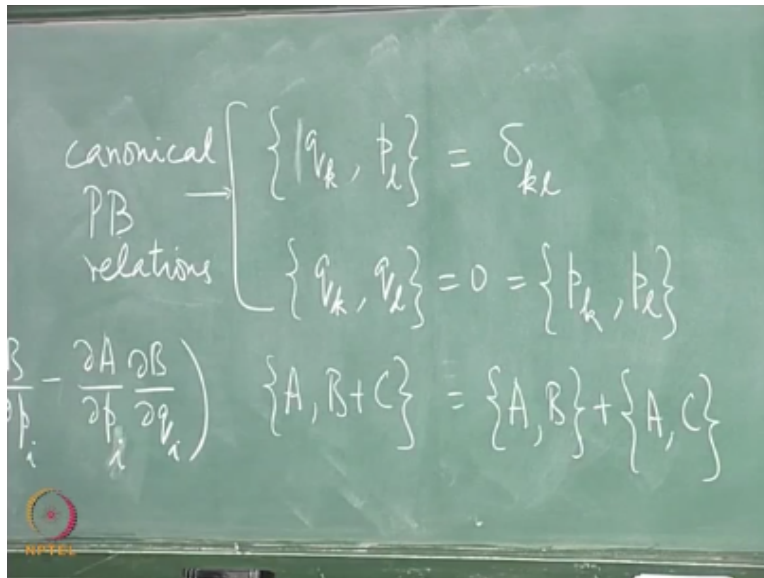 canonical PB relations → { q_k , p_l } = δ_kl
{ q_k , q_l } = 0 = { p_k , p_l }
B/∂p_i − ∂A/∂p_i ∂B/∂q_i ) {A, B+C} = {A, B} + {A, C}
NPTEL